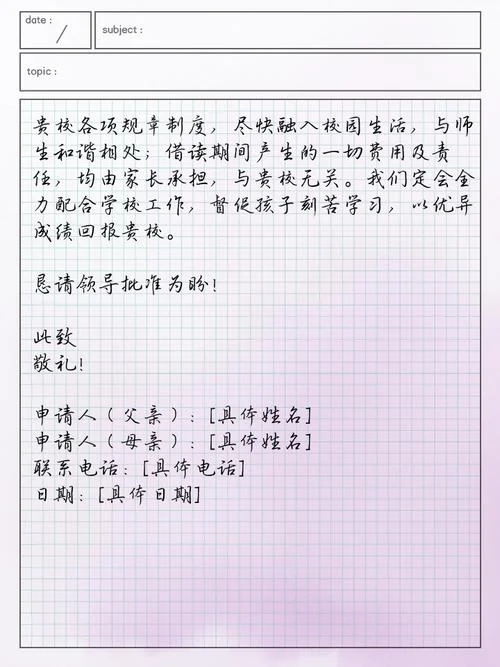 date :
subject :
topic :
贵校各项规章制度，尽快融入校园生活，与师
生和谐相处；借读期间产生的一切费用及责
任，均由家长承担，与贵校无关。我们定会全
力配合学校工作，督促孩子刻苦学习，以优异
成绩回报贵校。
恳请领导批准为盼！
此致
敬礼！
申请人（父亲）：[具体姓名]
申请人（母亲）：[具体姓名]
联系电话：[具体电话]
日期：[具体日期]